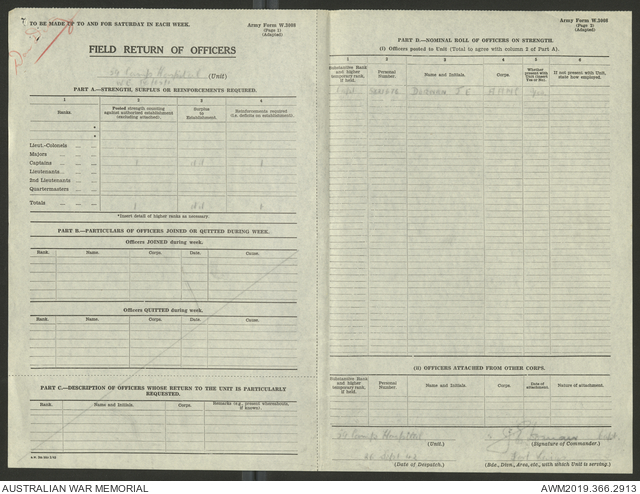 TO BE MADE UP TO AND FOR SATURDAY IN EACH WEEK.
Army Form W.3008
(Page 1)
(Adapted)
FIELD RETURN OF OFFICERS
Camp Hospital (Unit)
PART A.—STRENGTH, SURPLUS OR REINFORCEMENTS REQUIRED.
1 2 3 4
Ranks. Posted strength counting against authorized establishment (excluding attached). Surplus to Establishment. Reinforcements required (i.e. deficits on establishment).
*
*
Lieut.-Colonels
Majors
Captains 1
Lieutenants
2nd Lieutenants
Quartermasters
Totals 1
*Insert detail of higher ranks as necessary.
PART B.—PARTICULARS OF OFFICERS JOINED OR QUITTED DURING WEEK.
Officers JOINED during week.
Rank. Name. Corps. Date. Cause.
Officers QUITTED during week.
Rank. Name. Corps. Date. Cause.
PART C.—DESCRIPTION OF OFFICERS WHOSE RETURN TO THE UNIT IS PARTICULARLY REQUESTED.
Rank. Name and Initials. Corps. Remarks (e.g., present whereabouts, if known).
Army Form W.3008
(Page 2)
(Adapted)
PART D.—NOMINAL ROLL OF OFFICERS ON STRENGTH.
(i) Officers posted to Unit (Total to agree with column 2 of Part A).
1 2 3 4 5 6
Substantive Rank and higher temporary rank, if held. Personal Number. Name and Initials. Corps. Whether present with Unit (insert Yes or No). If not present with Unit, state how employed.
(ii) OFFICERS ATTACHED FROM OTHER CORPS.
Substantive Rank and higher temporary rank, if held. Personal Number. Name and Initials. Corps. Date of attachment. Nature of attachment.
Camp Hospital (Unit.) (Signature of Commander.)
(Date of Despatch.) (Bde., Divn., Area, etc., with which Unit is serving.)
AUSTRALIAN WAR MEMORIAL
AWM2019.366.2913